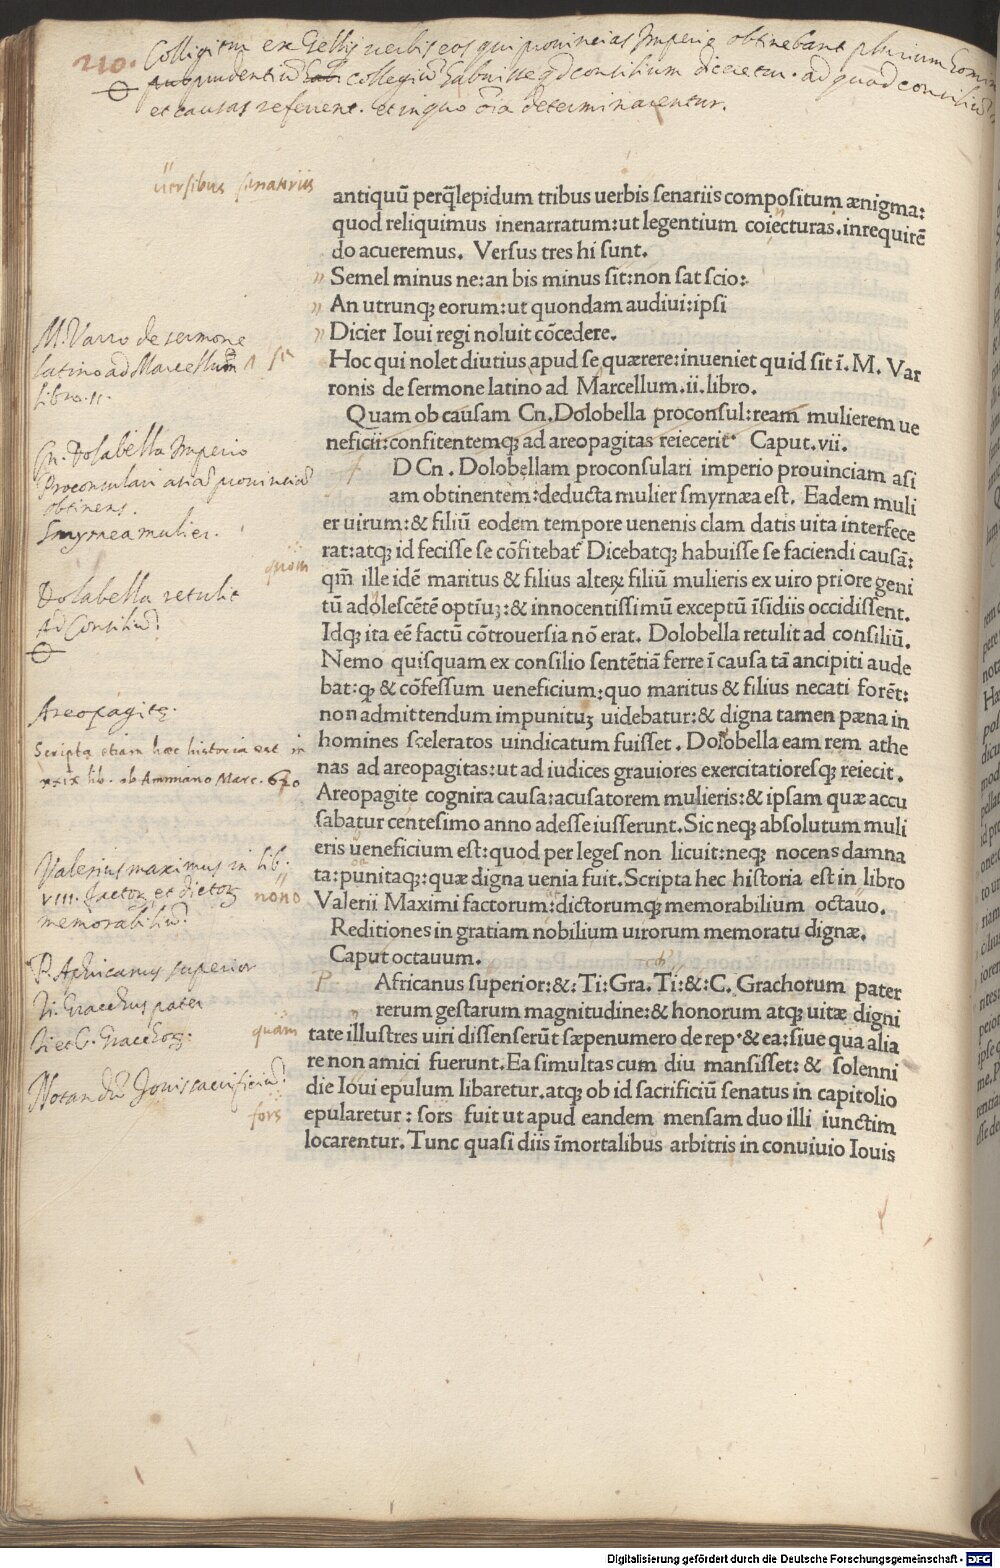 210.
Colligitur ex Gellii verbis eos qui provincias Imperio obtinebant plurium homin
prudentiũ collegiũ habuisse qd consilium diceretur. ad quod consiliũ
et causas referrent. et in quo oĩa determinarentur.
uersibus senariis
antiquũ perq̃lepidum tribus uerbis senariis compositum ænigma:
quod reliquimus inenarratum:ut legentium coiecturas.inrequirẽ
do acueremus. Versus tres hi sunt.
" Semel minus ne:an bis minus sit:non sat scio:
" An utrunq; eorum:ut quondam audiui:ipsi
" Dicier Ioui regi noluit cõcedere.
Hoc qui nolet diutius apud se quærere:inueniet quid sit ĩ.M. Var
ronis de sermone latino ad Marcellum.ii.libro.
Quam ob causam Cn.Dolobella proconsul:ream mulierem ue
neficii:confitentemq; ad areopagitas reiecerit. Caput.vii.
D Cn. Dolobellam proconsulari imperio prouinciam asi
am obtinentem:deducta mulier smyrnæa est. Eadem muli
er uirum:& filiũ eodem tempore uenenis clam datis uita interfece
rat:atq; id fecisse se cõfitebat̃ Dicebatq; habuisse se faciendi causã:
qm̃ ille idẽ maritus & filius alteꝝ filiũ mulieris ex uiro priore geni
tũ adolescẽtẽ optĩuꝫ:& innocentissimũ exceptũ ĩsidiis occidissent.
Idq; ita eẽ factũ cõtrouersia nõ erat. Dolobella retulit ad consiliũ.
Nemo quisquam ex consilio sentẽtiã ferre ĩ causa tã ancipiti aude
bat:q; & cõfessum ueneficium:quo maritus & filius necati forẽt:
non admittendum impunituꝫ uidebatur:& digna tamen pæna in
homines sceleratos uindicatum fuisset. Dolobella eam rem athe
nas ad areopagitas:ut ad iudices grauiores exercitatioresq; reiecit.
Areopagite cognira causa:acusatorem mulieris:& ipsam quæ accu
sabatur centesimo anno adesse iusserunt.Sic neq; absolutum muli
eris ueneficium est:quod per leges non licuit:neq; nocens damna
ta:punitaq;:quæ digna uenia fuit. Scripta hec historia est in libro
Valerii Maximi factorum:dictorumq; memorabilium octauo.
Reditiones in gratiam nobilium uirorum memoratu dignæ.
Caput octauum.
P Africanus superior:&:Ti:Gra.Ti:&:C. Grachorum pater
rerum gestarum magnitudine:& honorum atq; uitæ digni
tate illustres uiri dissenserũt sæpenumero de rep.& ea:siue qua alia
re non amici fuerunt.Ea simultas cum diu mansisset: & solenni
die Ioui epulum libaretur.atq; ob id sacrificiũ senatus in capitolio
epularetur: sors fuit ut apud eandem mensam duo illi iunctim
locarentur. Tunc quasi diis ĩmortalibus arbitris in conuiuio Iouis
M. Varro de sermone
latino ad Marcellum
libro. II.
Cn. Dolabella Imperio
Proconsulari asiã provinciã
obtinens.
Smyrnea mulier.
quom
Dolabella retulit
Ad Consiliũ
Areopagitę.
Scripta etiam hęc historia est in
xxix lib. ab Ammiano Marc.
Valerius maximus in lib.
VIII. factoꝝ et dictoꝝ
memorabiliũ.
nono
P. Aphricanus superior
Ti. Gracchus pater
Ti et C. Gracchoꝝ
quam
Notandũ Jovis sacrificiũ
fors
Digitalisierung gefördert durch die Deutsche Forschungsgemeinschaft - DFG